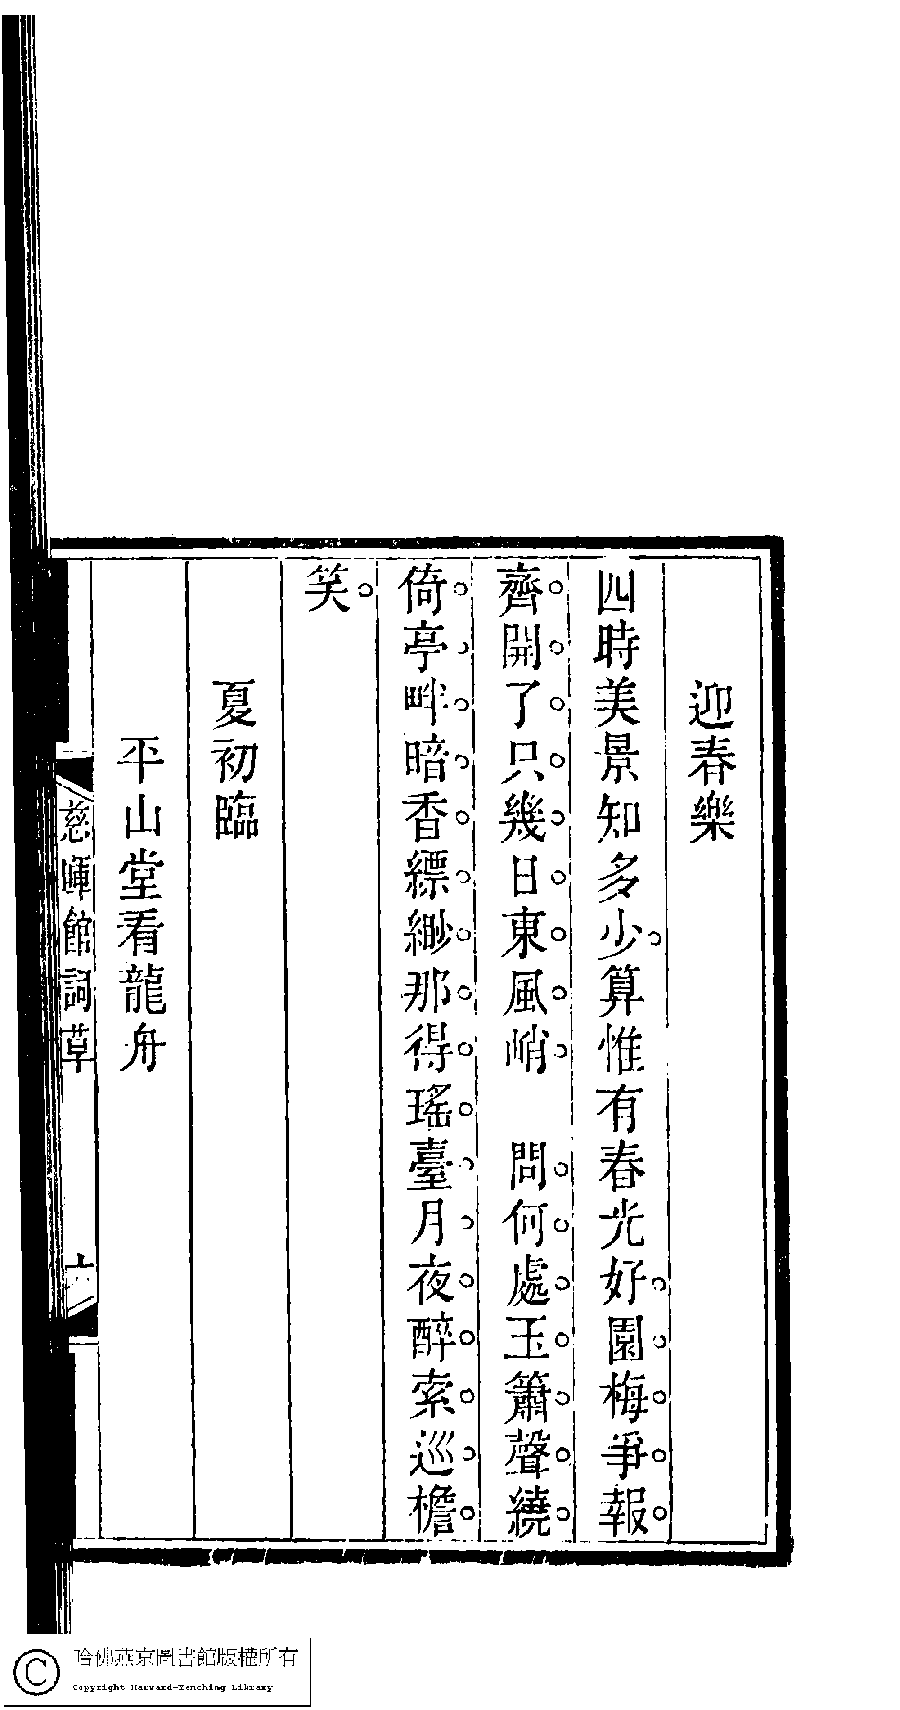 迎春樂
四時美景知多少。算惟有春光好。園。梅。爭。報。
齊。開。了。只。幾。日。東。風。峭。　問。何。處。玉。簫。聲。繞。
倚。亭。畔。暗。香。縹。緲。那。得。瑤。臺。月。夜。醉。索。巡。檐。
笑。
夏初臨
平山堂看龍舟
慈暉館詞草
六
哈佛燕京圖書館版權所有
Copyright Harvard-Yenching Library